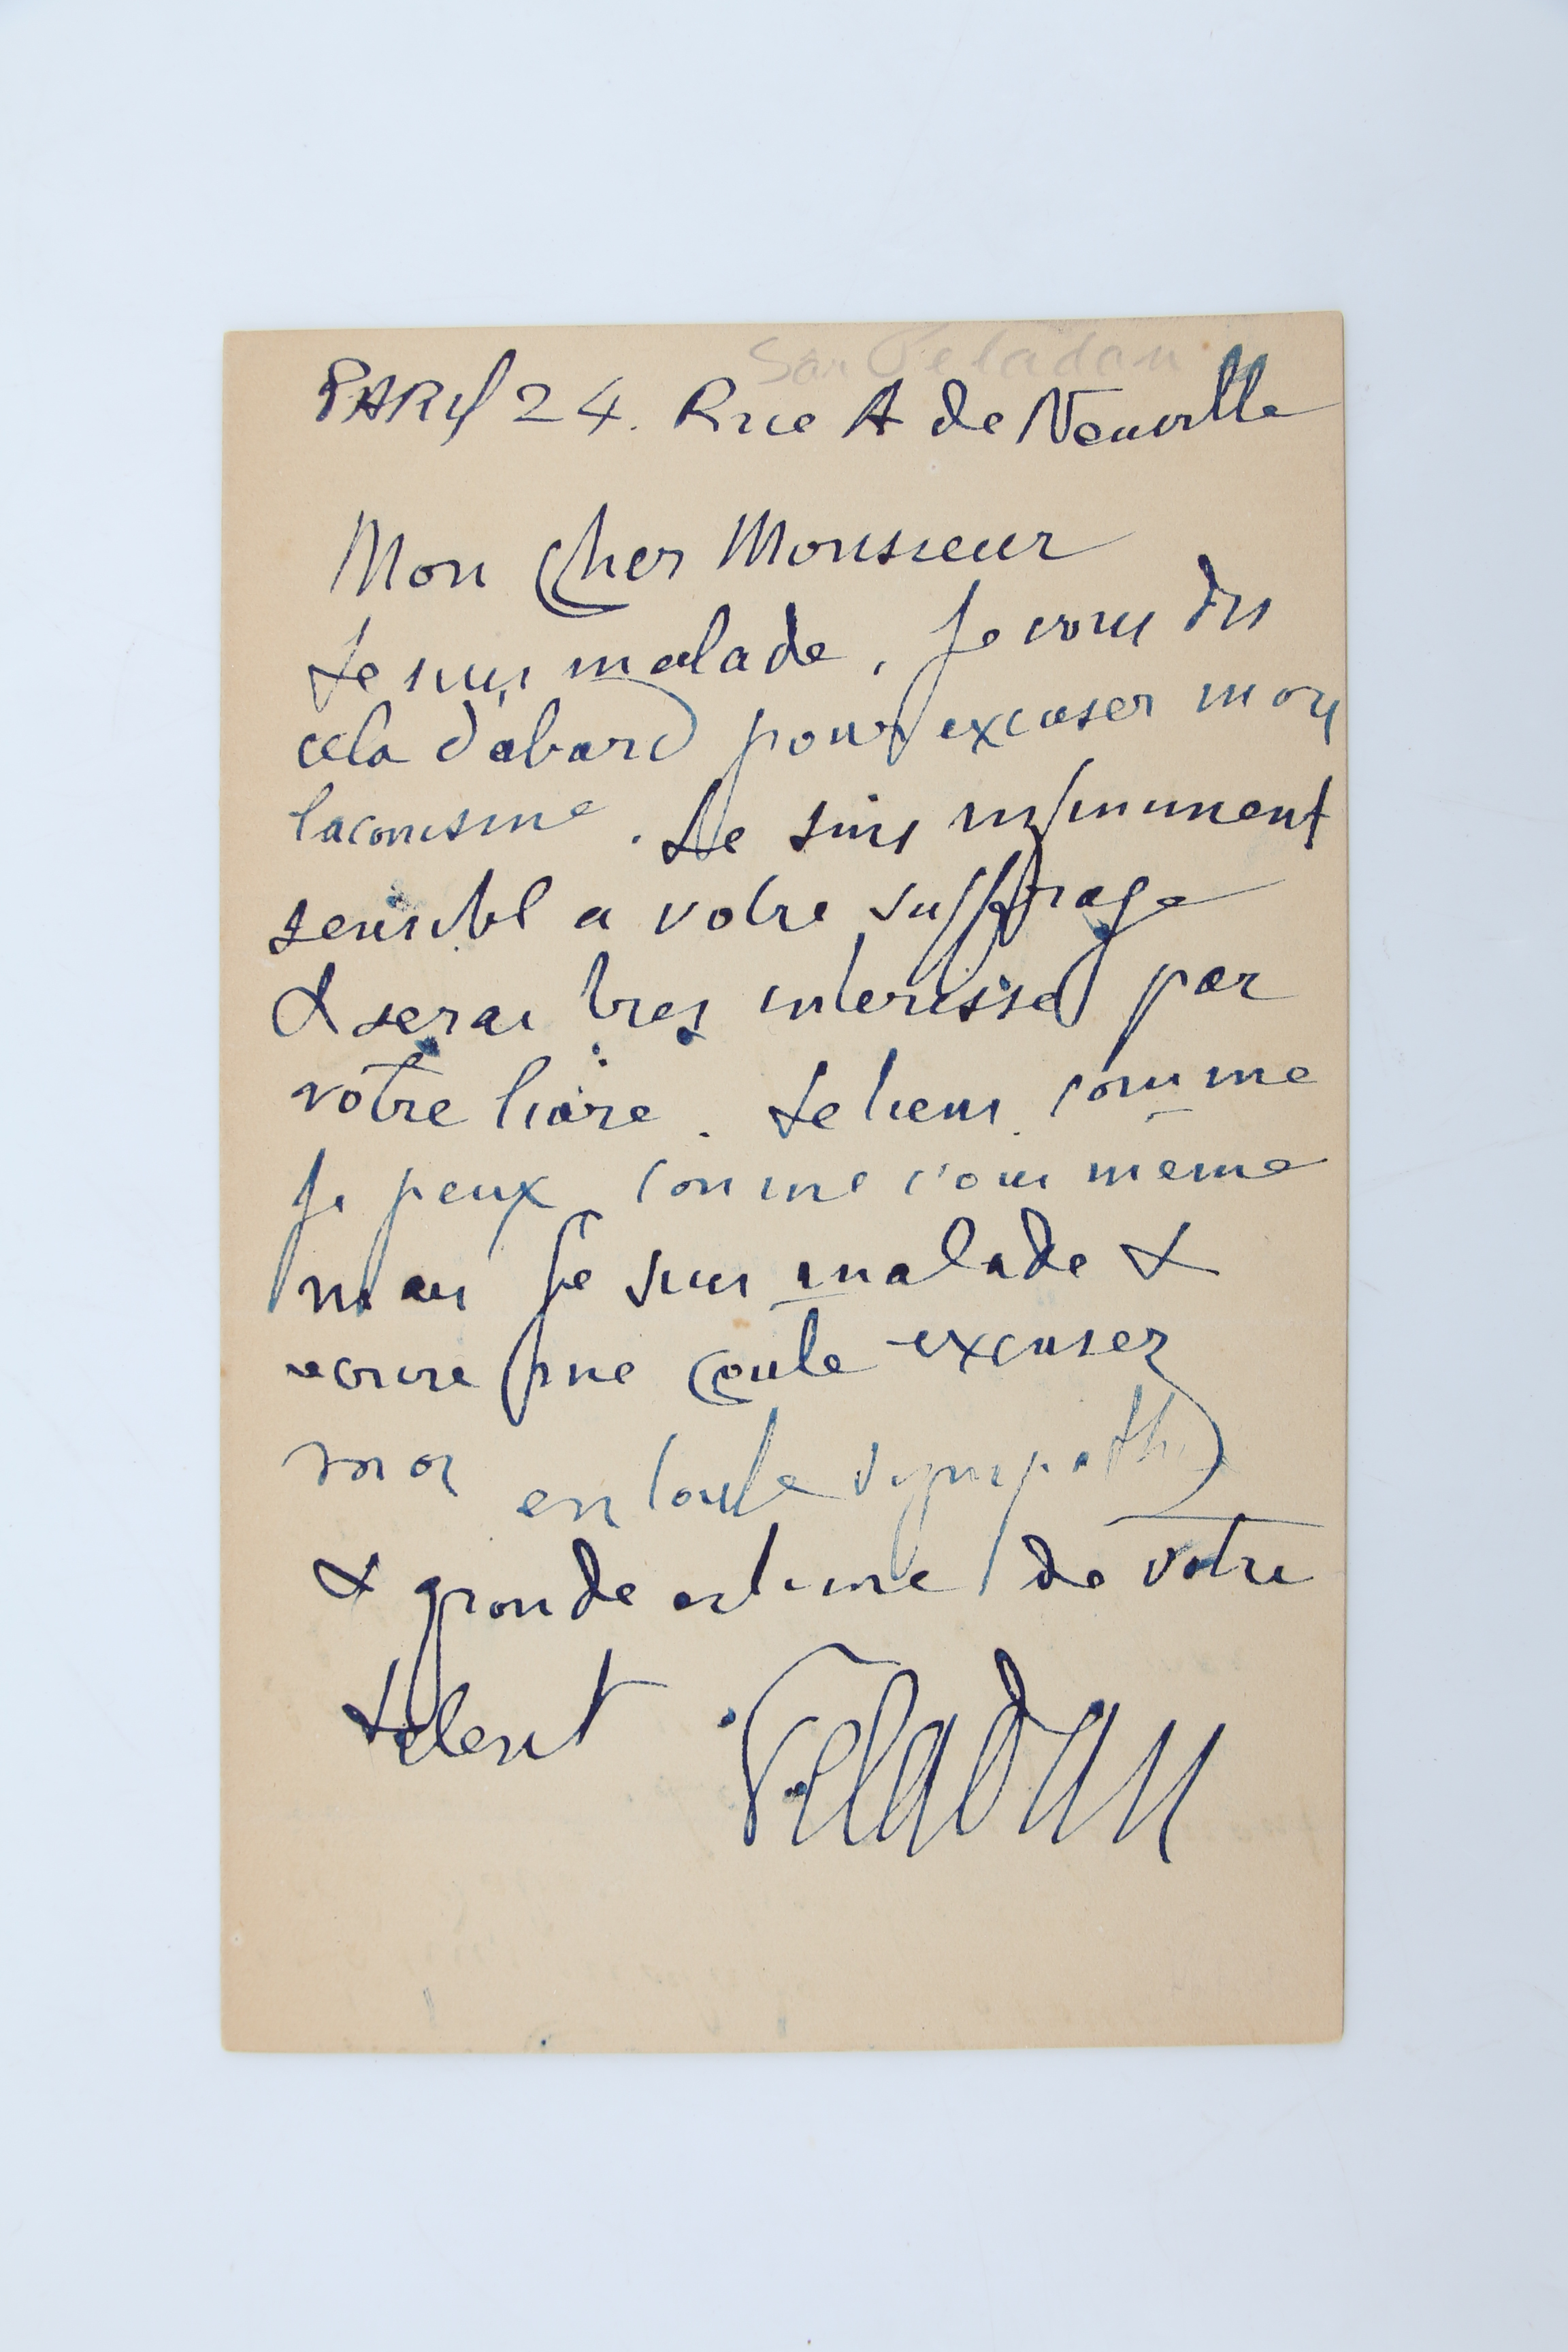 Sâr Peladan
PARIS 24. Rue A de Neuville
Mon Cher Monsieur
Je suis malade, Je vous dis
cela d'abord pour excuser mon
laconisme. Je suis infiniment
sensibl a votre suffrage
& serai tres interessé par
votre livre. Je viens comme
Je peux comme vous meme
mais Je suis malade &
ecrire me coute excusez
moi en toute sympath
& grande estime de votre
talent Péladan